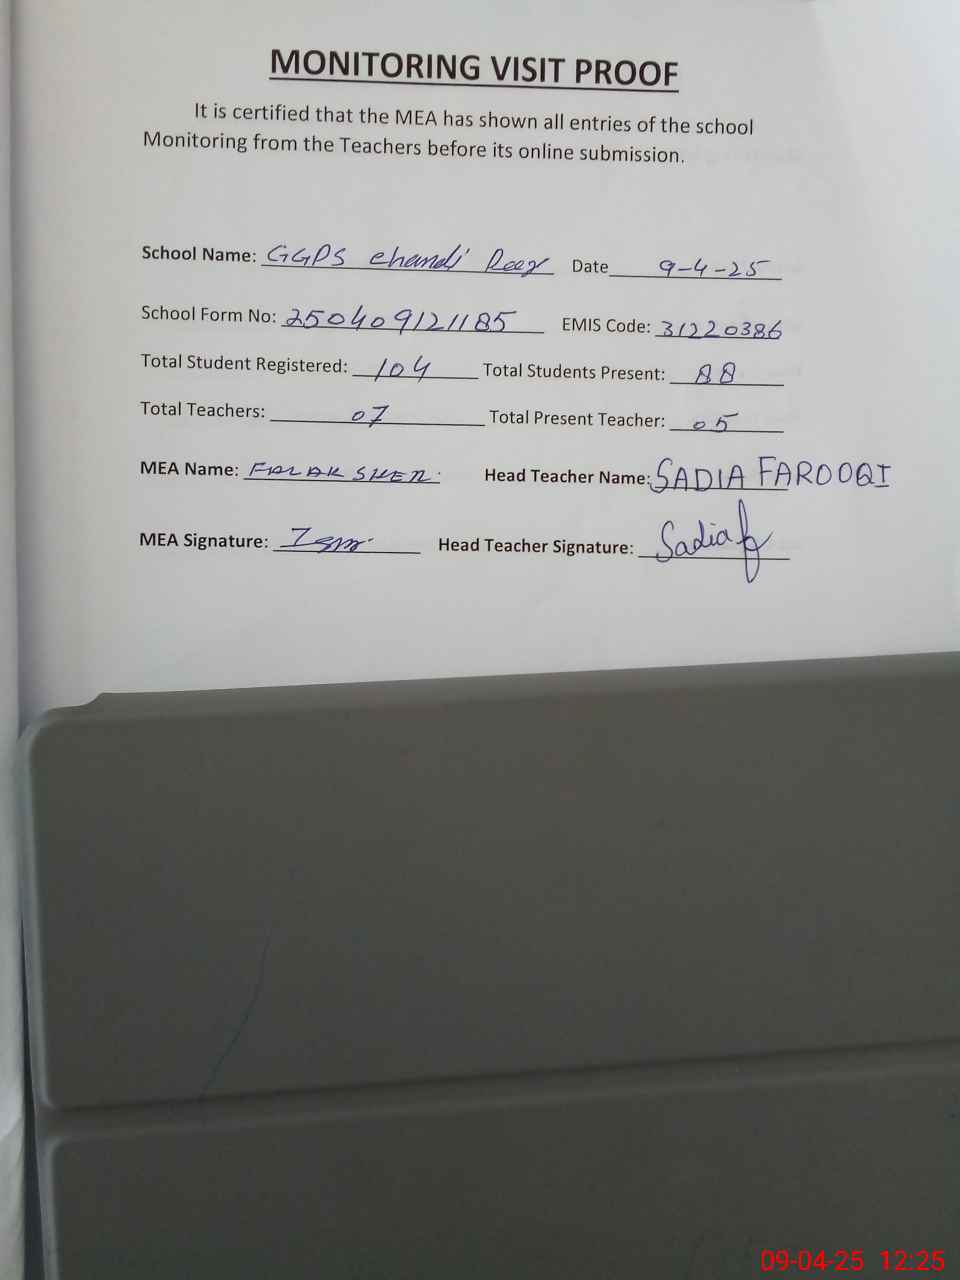 MONITORING VISIT PROOF
It is certified that the MEA has shown all entries of the school
Monitoring from the Teachers before its online submission.
School Name: GGPS chandi Date 9-4-25
School Form No: 250409121185 EMIS Code: 31220386
Total Student Registered: 104 Total Students Present: 88
Total Teachers: 07 Total Present Teacher: 05
MEA Name: FALAK SHER. Head Teacher Name: SADIA FAROOQI
MEA Signature: Head Teacher Signature: Sadia
09-04-25 12:25